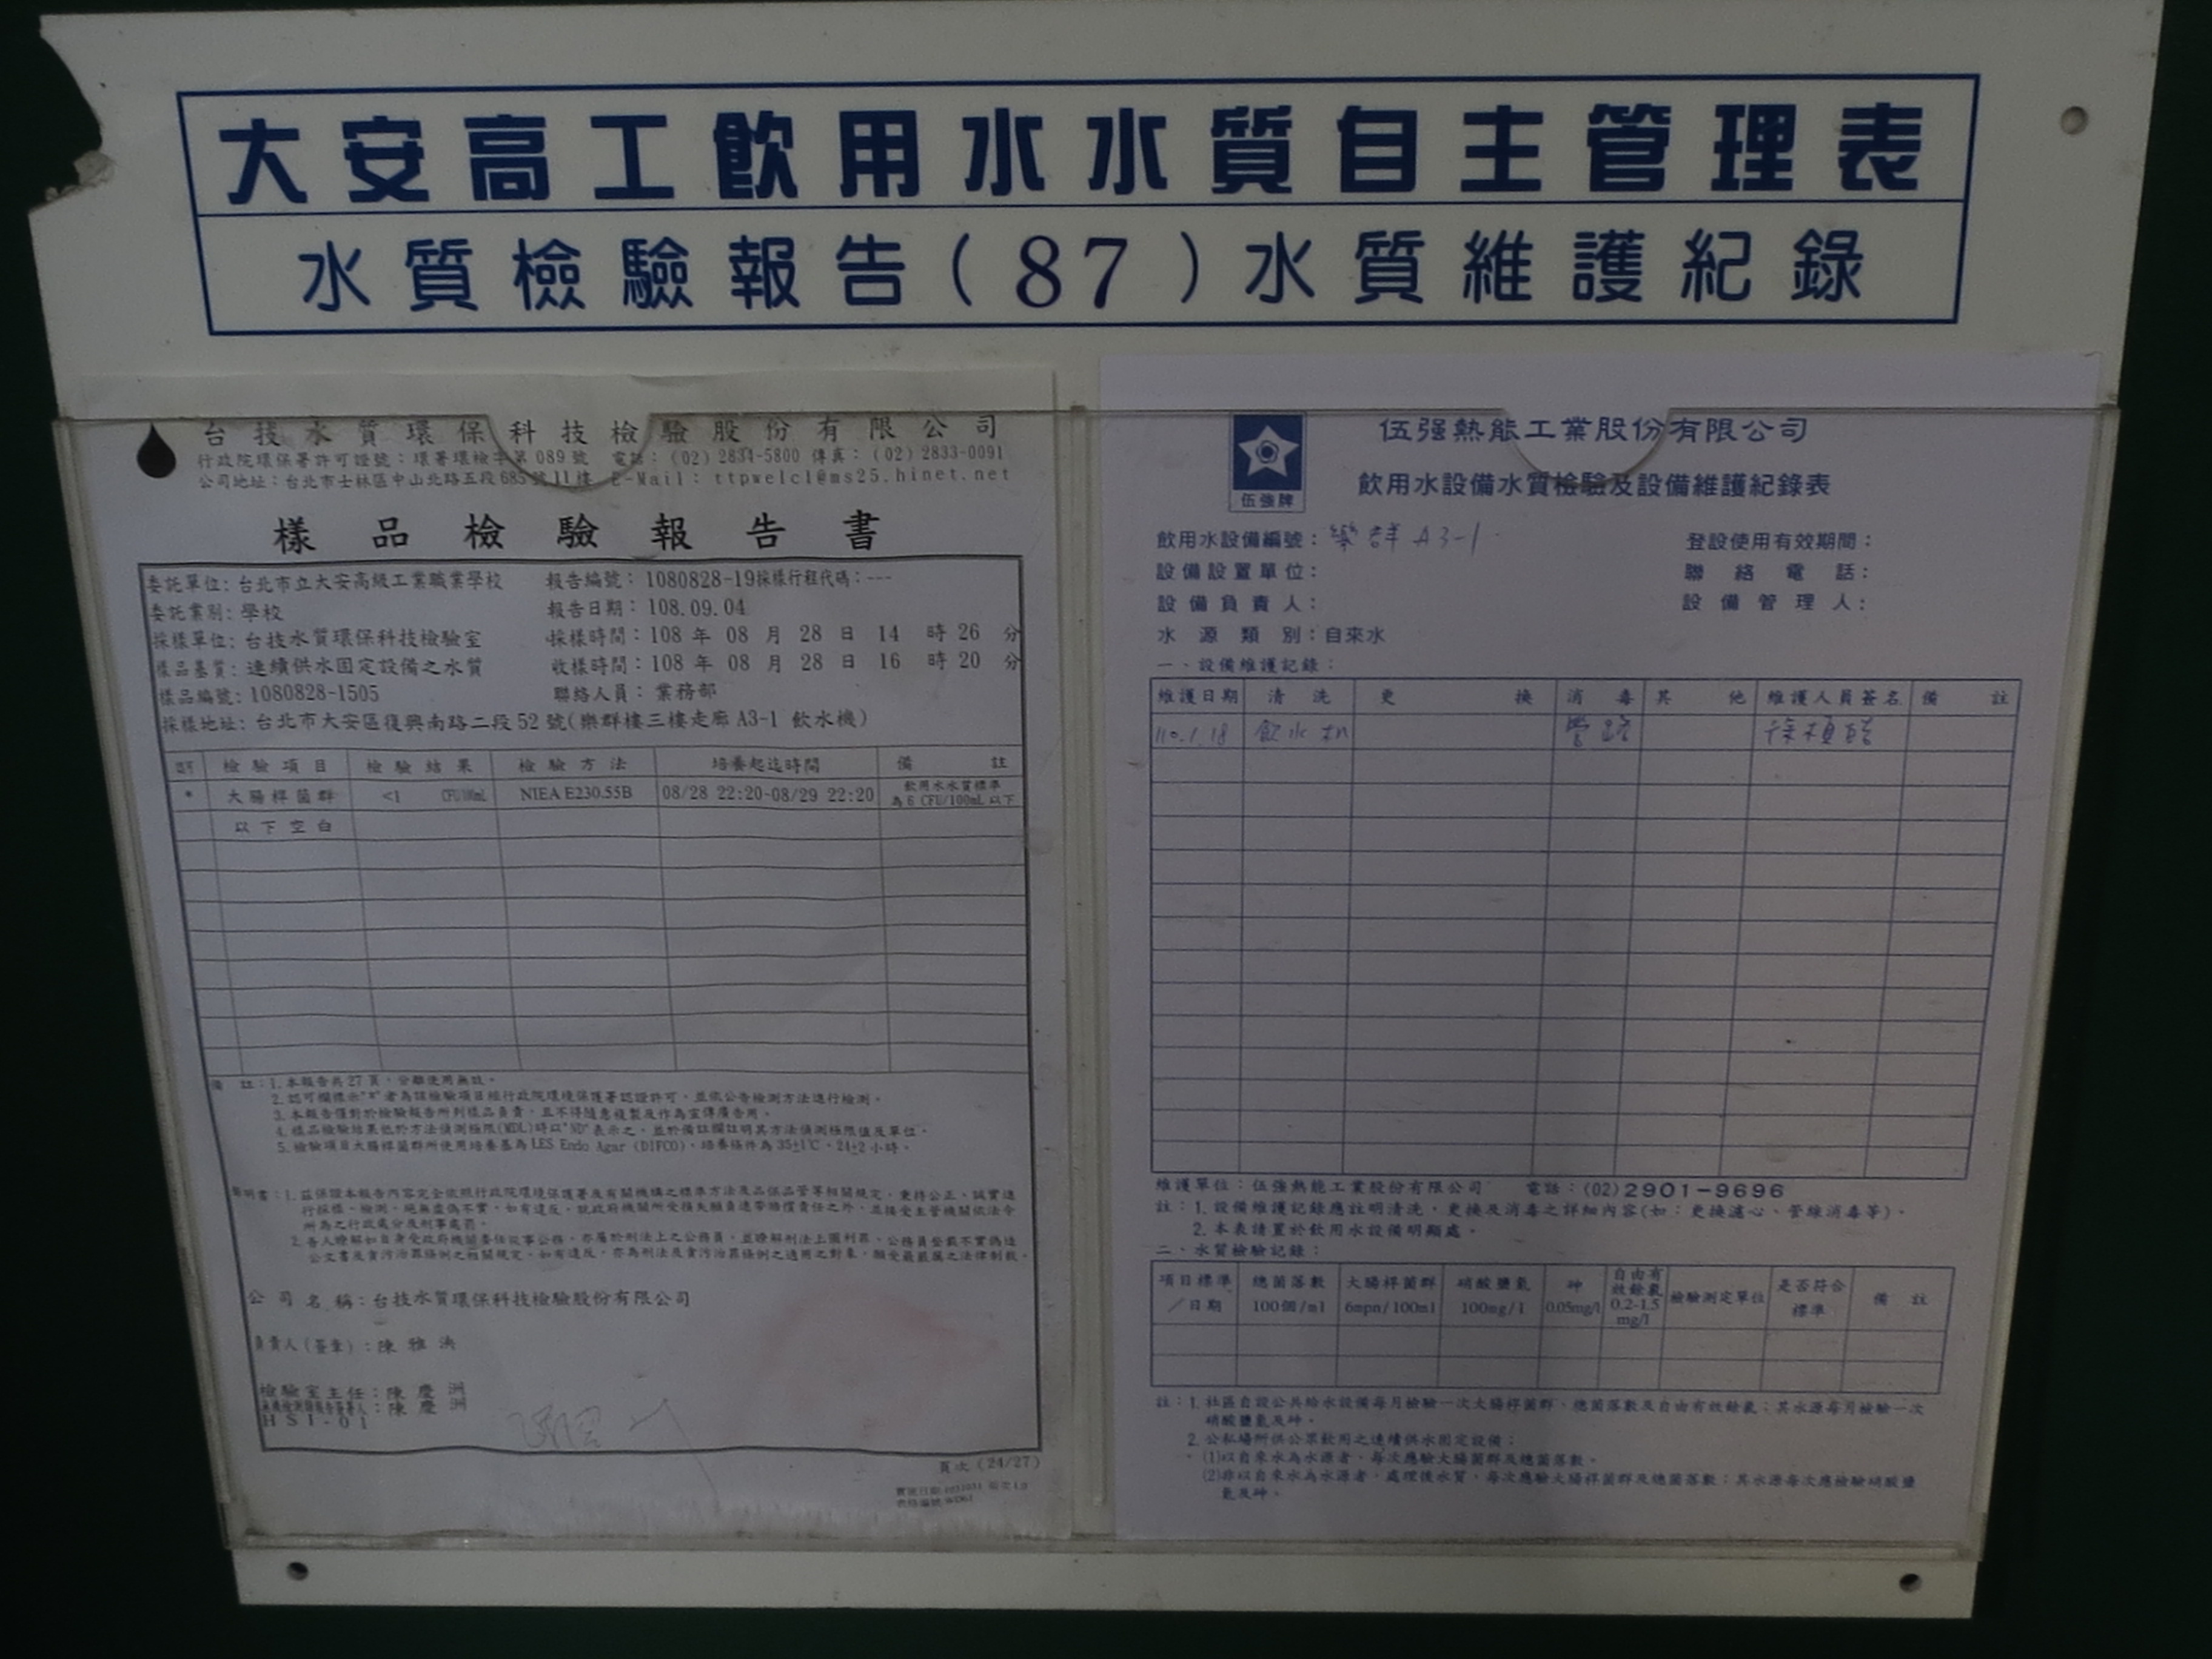 大安高工飲用水水質自主管理表
水質檢驗報告(87)水質維護紀錄
台技水質環保科技檢驗股份有限公司
行政院環保署許可證號：環署環檢字第089號 電話：(02) 2834-5800 傳真：(02) 2833-0091
公司地址：台北市士林區中山北路五段685號11樓 E-Mail： ttpwelcl@ms25.hinet.net
樣品檢驗報告書
委託單位: 台北市立大安高級工業職業學校 報告編號：1080828-19採樣行程代碼：---
委託業別: 學校 報告日期：108.09.04
採樣單位: 台技水質環保科技檢驗室 採樣時間：108 年 08 月 28 日 14 時 26 分
樣品基質: 連續供水固定設備之水質 收樣時間：108 年 08 月 28 日 16 時 20 分
樣品編號: 1080828-1505 聯絡人員：業務部
採樣地址: 台北市大安區復興南路二段52號(樂群樓三樓走廊 A3-1 飲水機)
檢驗項目 檢驗結果 檢驗方法 培養起迄時間 備註
* 大腸桿菌群 <1 CFU/100mL NIEA E230.55B 08/28 22:20-08/29 22:20 飲用水水質標準
為6 CFU/100mL 以下
以下空白
備 註：1. 本報告共27頁，分離使用無效。
2. 認可欄標示"*"者為該檢驗項目經行政院環境保護署認證許可，並依公告檢測方法進行檢測。
3. 本報告僅對於檢驗報告所列樣品負責，且不得隨意複製及作為宣傳廣告用。
4. 樣品檢驗結果低於方法偵測極限(MDL)時以"ND"表示之，並於備註欄註明其方法偵測極限值及單位。
5. 檢驗項目大腸桿菌群所使用培養基為 LES Endo Agar (DIFCO)，培養條件為 35±1℃、24±2 小時。
聲明書：1. 茲保證本報告內容完全依照行政院環境保護署及有關機構之標準方法及品保品管等相關規定，秉持公正、誠實進
行採樣、檢測。絕無虛偽不實，如有違反，就政府機關所受損失願負連帶賠償責任之外，並接受主管機關依法令
所為之行政處分及刑事處罰。
2. 吾人瞭解如自身受政府機關委任從事公務，亦屬於刑法上之公務員，並瞭解刑法上圖利罪、公務員登載不實偽造
公文書及貪污治罪條例之相關規定，如有違反，亦為刑法及貪污治罪條例之適用之對象，願受最嚴厲之法律制裁。
公司名稱：台技水質環保科技檢驗股份有限公司
負責人(簽章)：陳雅洪
檢驗室主任：陳慶洲
陳慶洲
HSI-01
頁次 (24/27)
伍強牌
伍强熱能工業股份有限公司
飲用水設備水質檢驗及設備維護紀錄表
飲用水設備編號：樂群 A3-1 登設使用有效期間：
設備設置單位： 聯絡電話：
設備負責人： 設備管理人：
水源類別：自來水
一、設備維護記錄：
維護日期 清洗 更換 消毒 其他 維護人員簽名 備註
110.1.18 飲水机 管路
維護單位：伍強熱能工業股份有限公司 電話：(02)2901-9696
註：1. 設備維護記錄應註明清洗，更換及消毒之詳細內容(如：更換濾心、管線消毒等)。
2. 本表請置於飲用水設備明顯處。
二、水質檢驗記錄：
項目標準／日期 總菌落數 100個/ml 大腸桿菌群 6mpn/100ml 硝酸鹽氮 100mg/l 砷 0.05mg/l 自由有效餘氯 0.2-1.5 mg/l 檢驗測定單位 是否符合標準 備註
註：1. 社區自設公共給水設備每月檢驗一次大腸桿菌群、總菌落數及自由有效餘氯；其水源每月檢驗一次
硝酸鹽氮及砷。
2. 公私場所供公眾飲用之連續供水固定設備：
(1)以自來水為水源者，每次應驗大腸菌群及總菌落數。
(2)非以自來水為水源者，處理後水質，每次應驗大腸桿菌群及總菌落數；其水源每次應檢驗硝酸鹽
氮及砷。